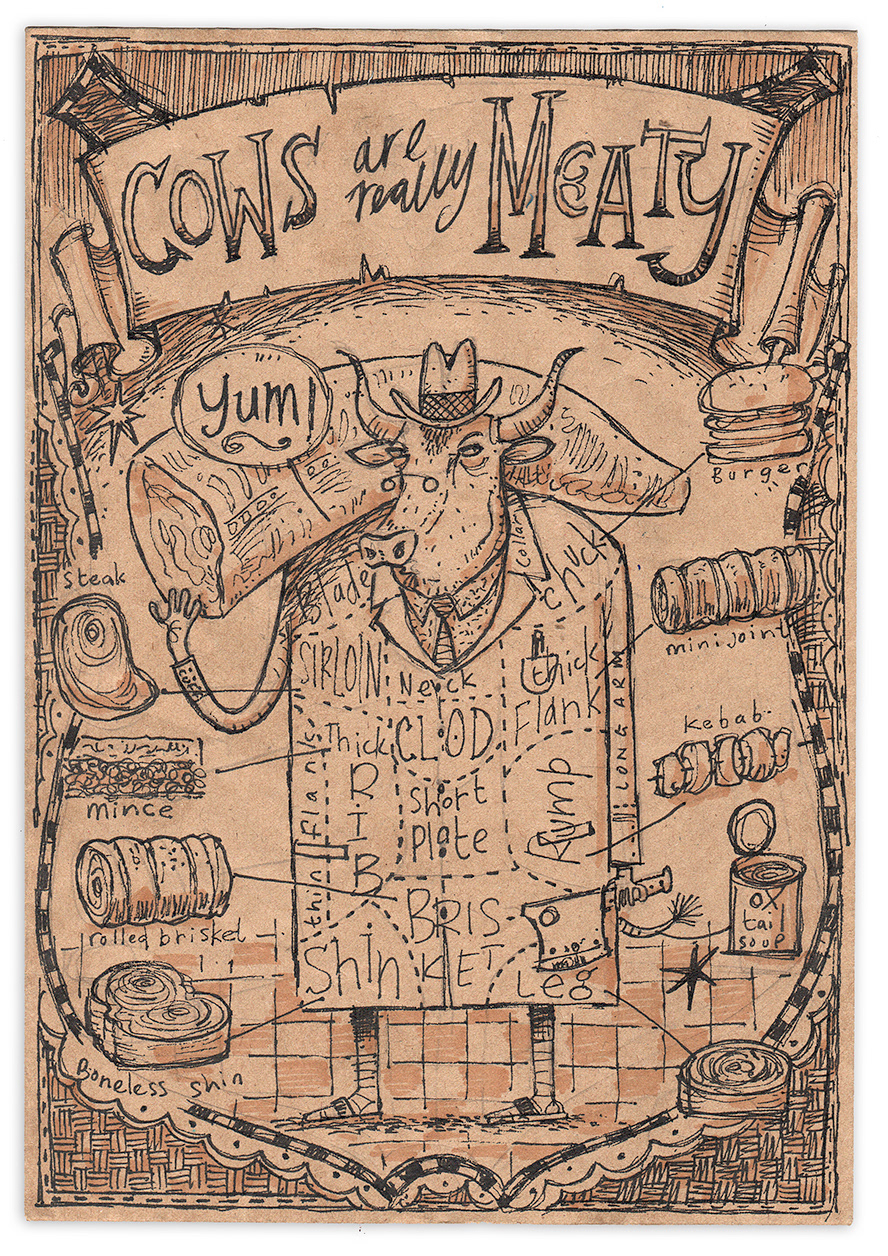 COWS are really MEATY
Yum!
Burger
Steak
Blade
Collar
chuck
mini joint
SIRLOIN
Neck
thick
Flank
LONG ARM
cuff
Thick
RIB
CLOD
Kebab
mince
thin Flank
Short
Plate
Rump
rolled brisket
BRIS
KET
OX
tail
soup
Shin
Leg
Boneless shin